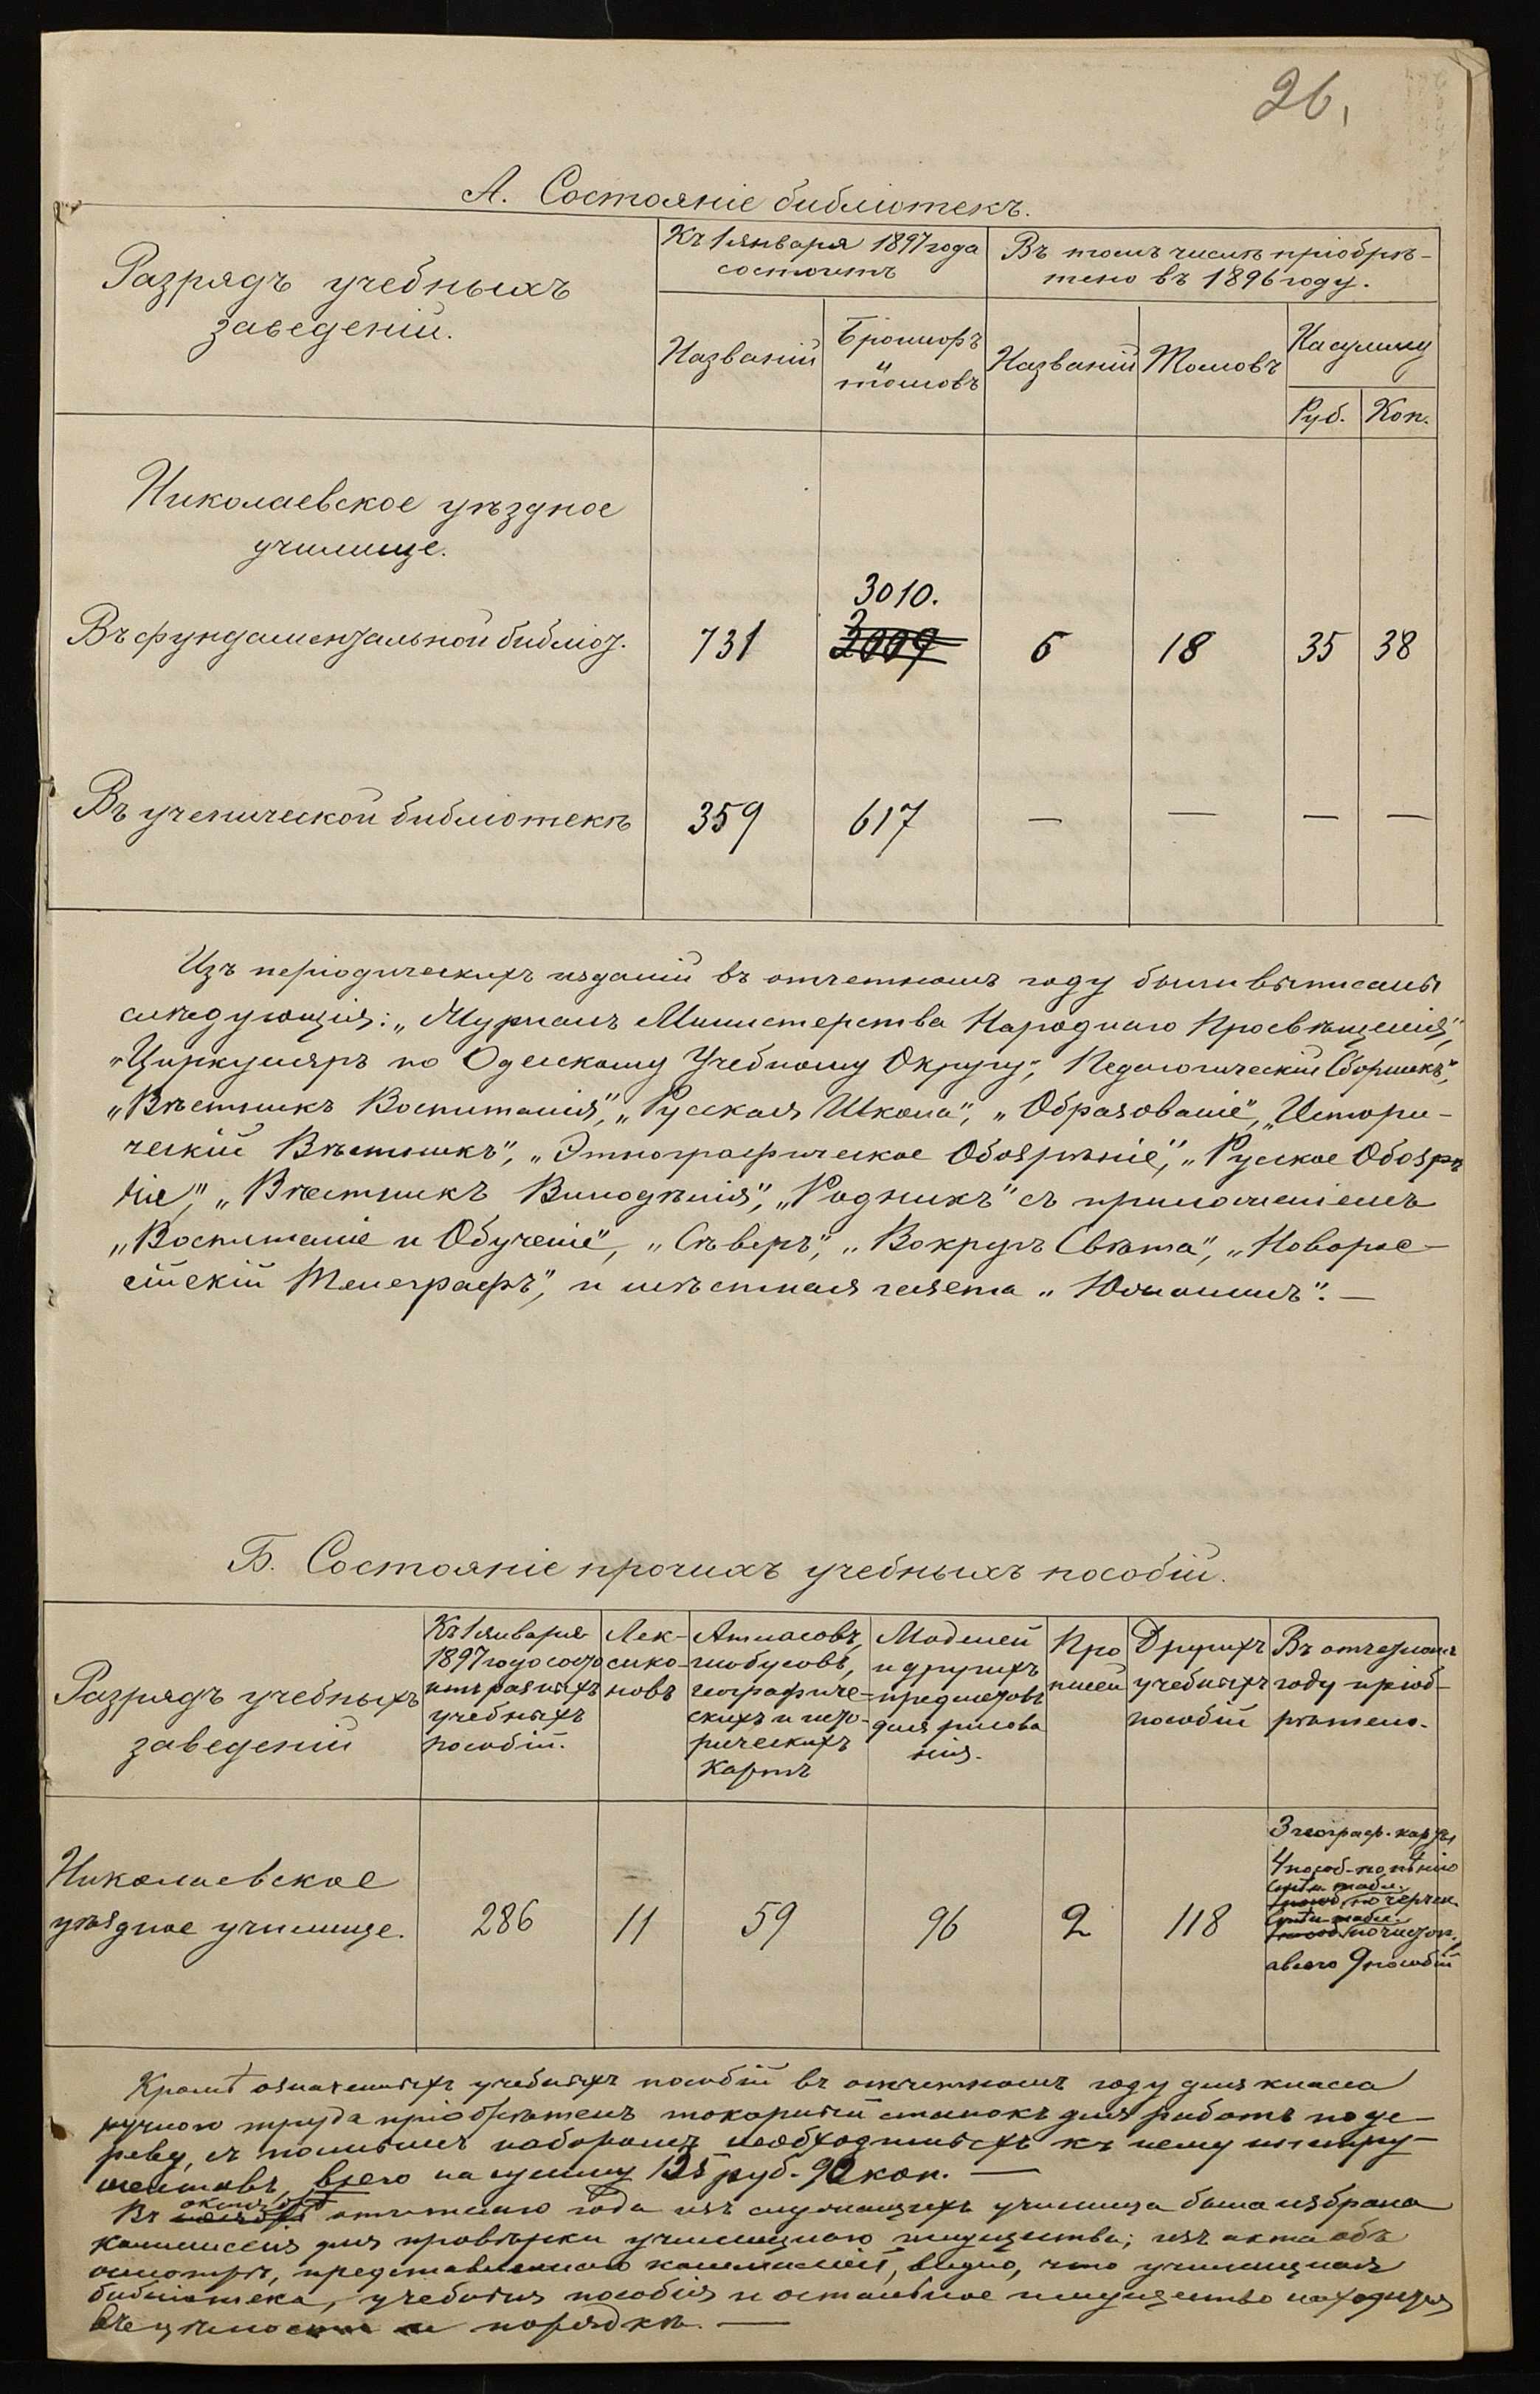 26,
А. Состояніе библіотекъ.
Разрядъ учебныхъ
заведеній.
Къ 1 января 1897 года
состоитъ
Въ томъ числѣ пріобрѣ-
тено въ 1896 году.
Названій
Брошюръ
и
томовъ
Названій
Томовъ
На сумму
Руб.
Коп.
Николаевское уѣздное
училище.
3010.
Въ фундаментальной библіот. 731 3009 6 18 35 38
Въ ученической библіотекѣ 359 617 — — — —
Изъ періодическихъ изданій въ отчетномъ году были выписаны
слѣдующія: „Журналъ Министерства Народнаго Просвѣщенія",
„Циркуляръ по Одесскому Учебному Округу", Педагогическій Сборникъ",
„Вѣстникъ Воспитанія", „Русская Школа", „Образованіе", „Истори-
ческій Вѣстникъ", „Этнографическое Обозрѣніе", „Русское Обозрѣ
ніе", „Вѣстникъ Винодѣлія", „Родникъ" съ приложеніемъ
„Воспитаніе и Обученіе", „Сѣверъ", „Вокругъ Свѣта", „Новорос-
сійскій Телеграфъ", и мѣстная газета „Южанинъ". —
Б. Состояніе прочихъ учебныхъ пособій.
Разрядъ учебныхъ
заведеній
Къ 1 января
1897 года состо
итъ разныхъ
учебныхъ
пособій.
Лек-
сико-
новъ
Атласовъ,
глобусовъ,
географиче-
скихъ и исто-
рическихъ
картъ
Моделей
и другихъ
предметовъ
для рисова
нія.
Про
писей
Другихъ
учебныхъ
пособій
Въ отчетномъ
году пріоб-
рѣтено.
Николаевское
уѣздное училище.
286 11 59 96 2 118
3 географ. карты
4 пособ. по пѣнію
табл.
по черчен.
табл.
по чистоп.
а всего 9 пособій
Кромѣ означенныхъ учебныхъ пособій въ отчетномъ году для класса
ручного труда пріобрѣтенъ токарный станокъ для работъ по де-
реву, съ полнымъ наборомъ необходимыхъ къ нему инстру-
ментовъ, всего на сумму 128 руб. 92 коп. —
Въ отчетнаго года изъ служащихъ училища была избрана
коммиссія для провѣрки училищнаго имущества; изъ акта объ
осмотрѣ, представленнаго коммиссіей, видно, что училищная
библіотека, учебныя пособія и остальное имущество находится
въ цѣлости и порядкѣ. —